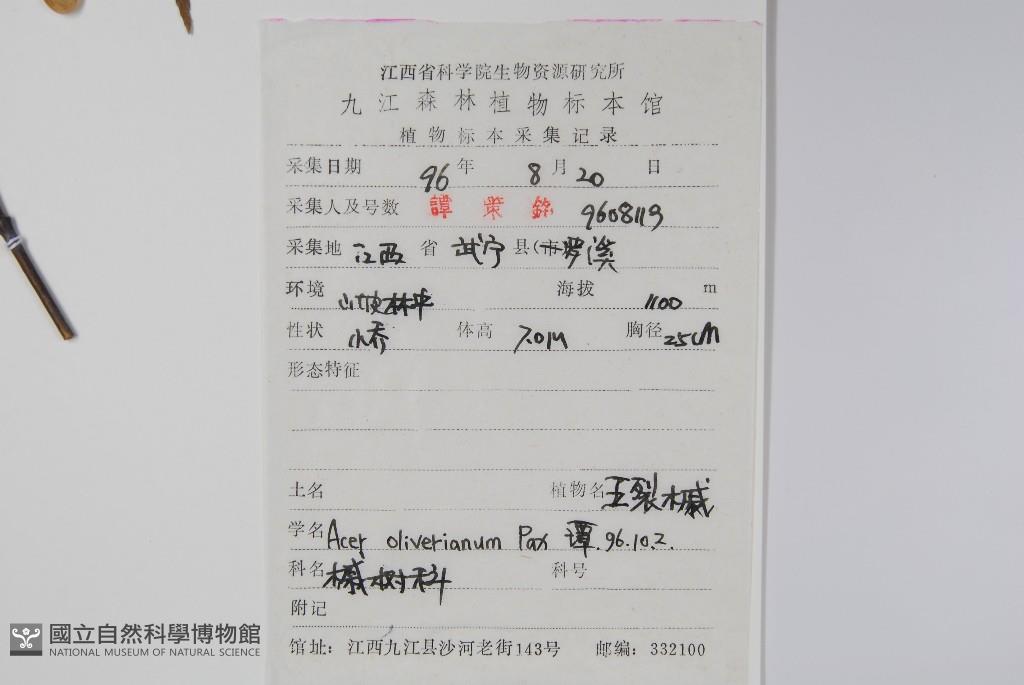 江西省科学院生物资源研究所
九江森林植物标本馆
植物标本采集记录
采集日期 96 年 8 月 20 日
采集人及号数 譚策銘 9608119
采集地 江西 省 武宁 县(市 罗溪
环境 山坡林中 海拔 1100 m
性状 小乔 体高 7.0M 胸径 25cM
形态特征
土名 植物名 五裂槭
学名 Acer oliverianum Pax 譚.96.10.2.
科名 槭树科 科号
附记
馆址：江西九江县沙河老街143号 邮编：332100
國立自然科學博物館
NATIONAL MUSEUM OF NATURAL SCIENCE